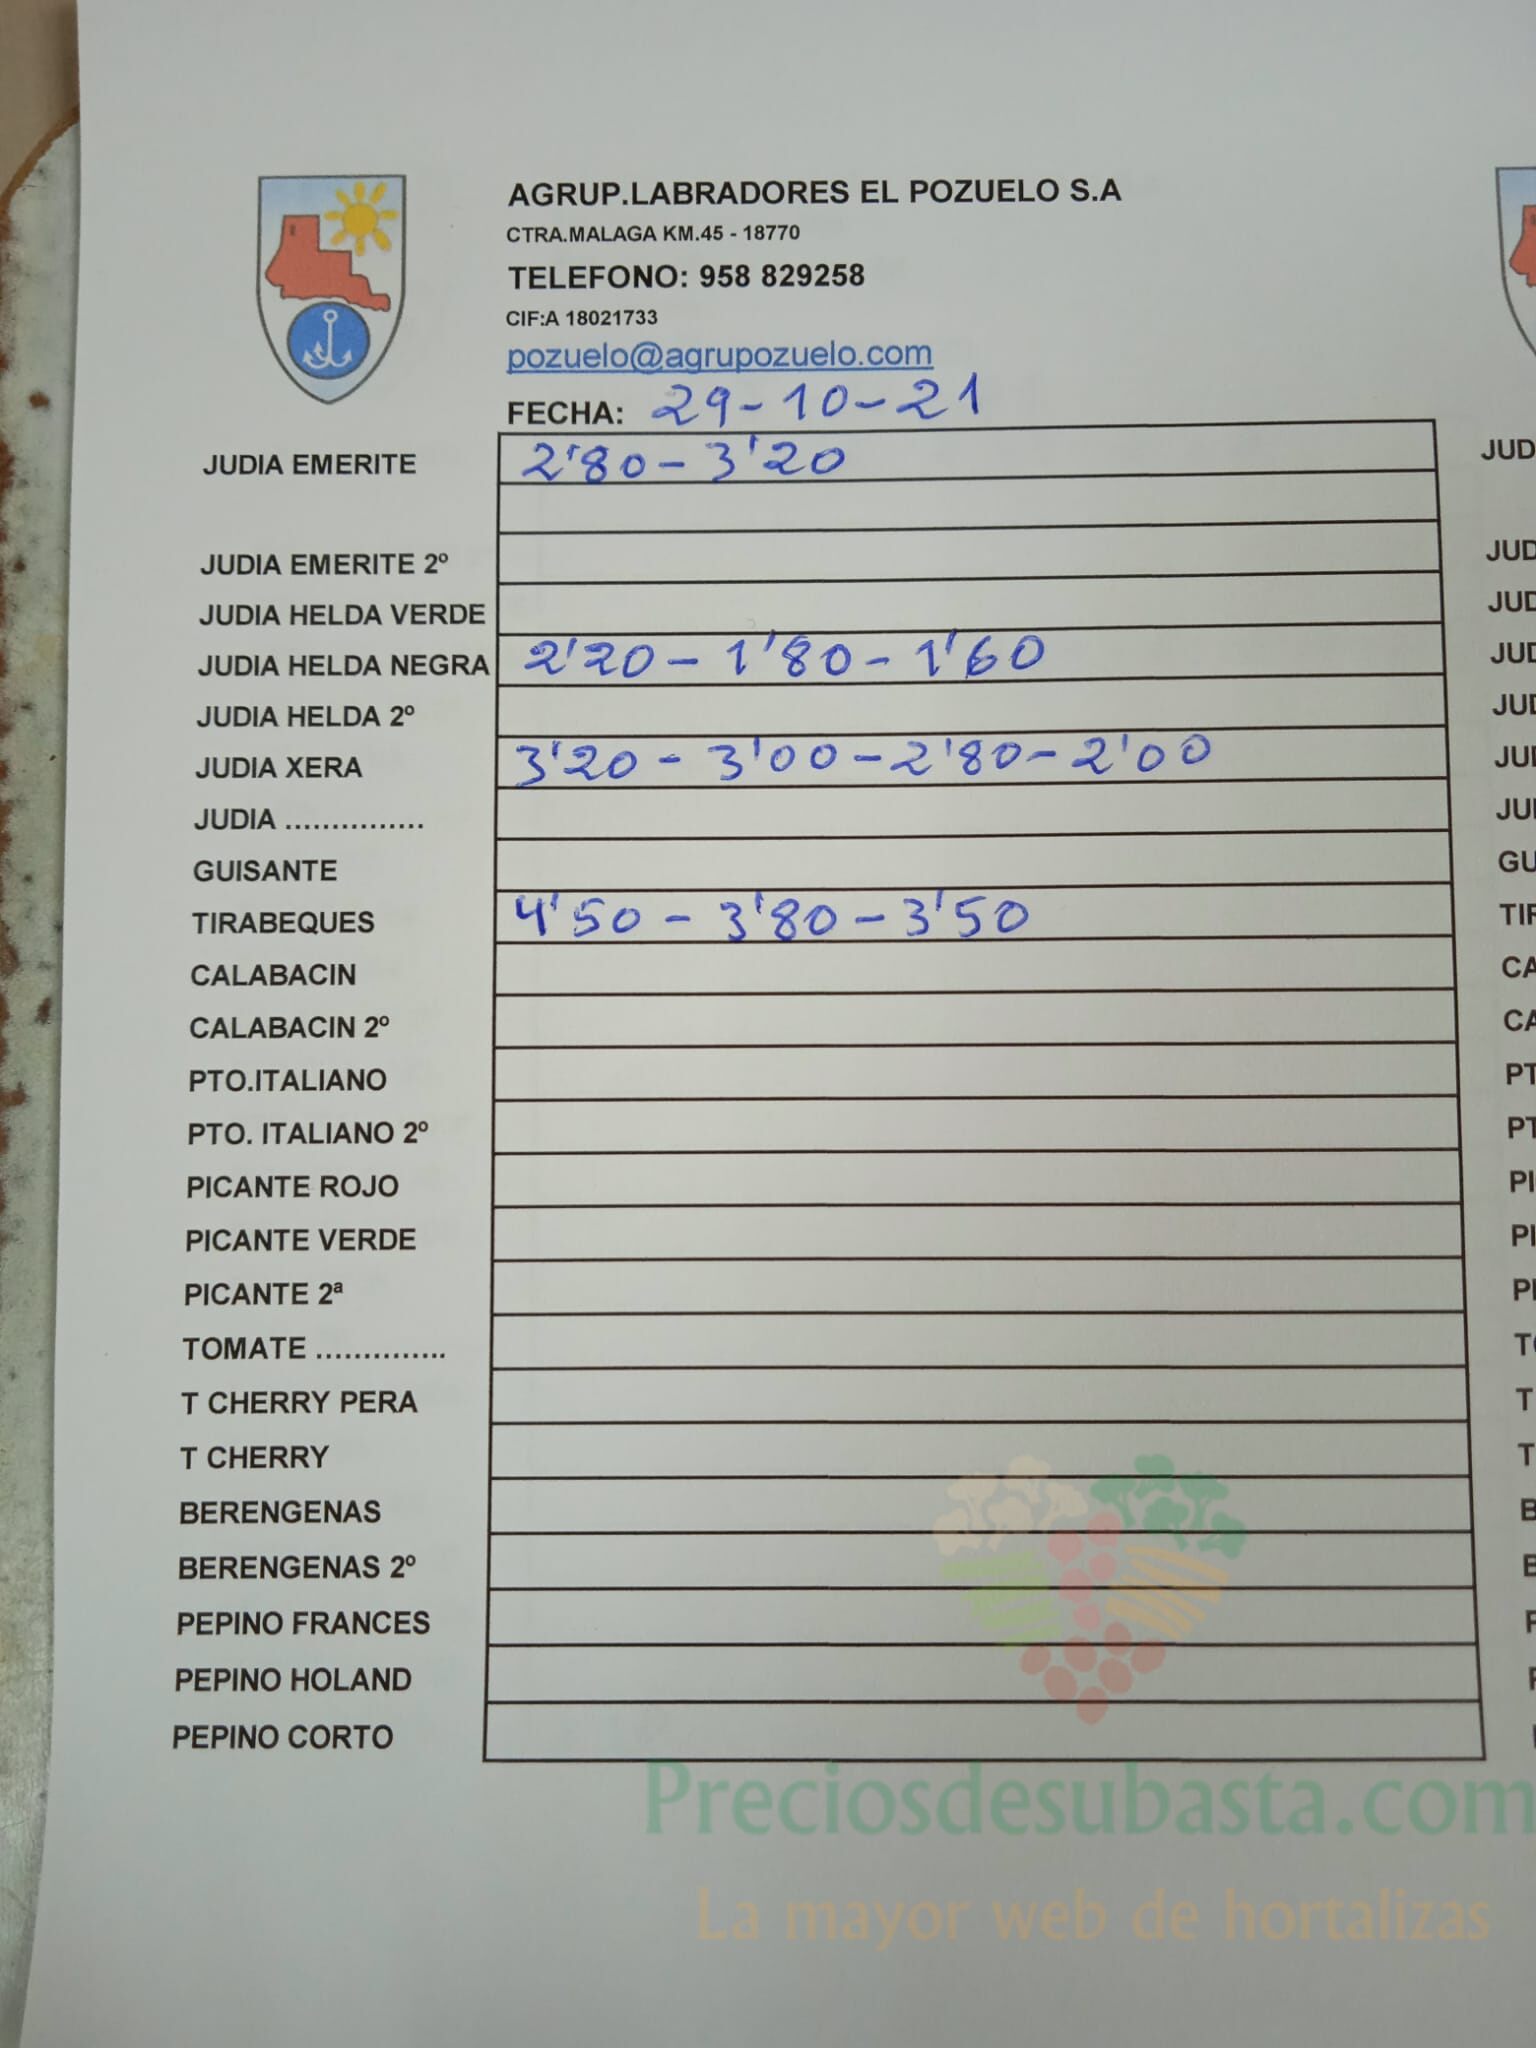 AGRUP.LABRADORES EL POZUELO S.A
CTRA.MALAGA KM.45 - 18770
TELEFONO: 958 829258
CIF:A 18021733
pozuelo@agrupozuelo.com
FECHA: 29-10-21
JUDIA EMERITE 2'80 - 3'20
JUDIA EMERITE 2º
JUDIA HELDA VERDE
JUDIA HELDA NEGRA 2'20 - 1'80 - 1'60
JUDIA HELDA 2º
JUDIA XERA 3'20 - 3'00 - 2'80 - 2'00
JUDIA ...............
GUISANTE
TIRABEQUES 4'50 - 3'80 - 3'50
CALABACIN
CALABACIN 2º
PTO.ITALIANO
PTO. ITALIANO 2º
PICANTE ROJO
PICANTE VERDE
PICANTE 2ª
TOMATE ..............
T CHERRY PERA
T CHERRY
BERENGENAS
BERENGENAS 2º
PEPINO FRANCES
PEPINO HOLAND
PEPINO CORTO
Preciosdesubasta.com
La mayor web de hortalizas